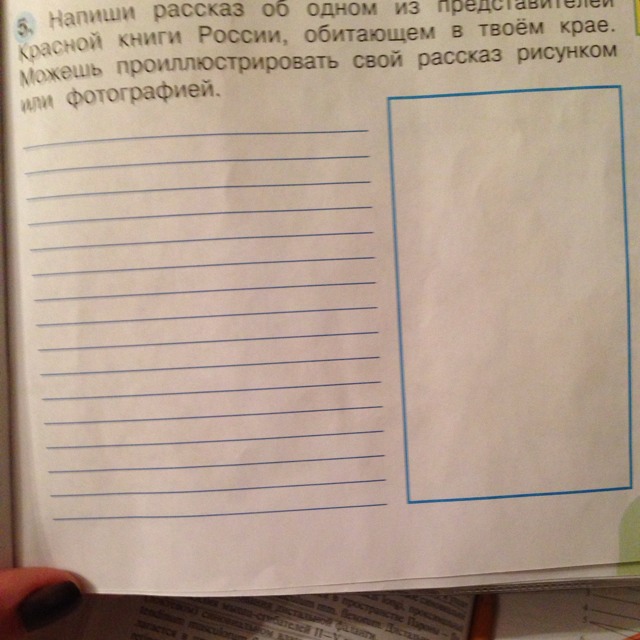 5. Напиши рассказ об одном из представителей
Красной книги России, обитающем в твоём крае.
Можешь проиллюстрировать свой рассказ рисунком
или фотографией.